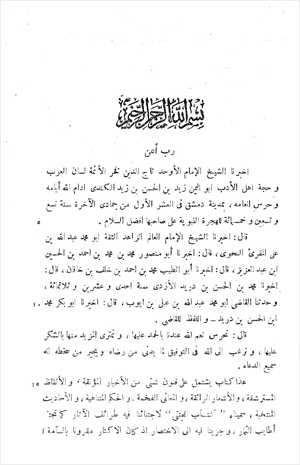 بسم الله الرحمن الرحيم
رب أعن
اخبرنا الشيخ الإمام الأوحد تاج الدين فخر الأئمة لسان العرب
و حجة اهل الأدب ابو اليمن زيد بن الحسن بن زيد الكندى ادام الله أيامه
و حرس انعامه، بمدينة دمشق فى العشر الأول من جمادى الآخرة سنة سبع
و تسعين و خمسمائة للهجرة النبوية على صاحبها افضل السلام . ٥
قال: اخبرنا الشيخ الإمام العالم الزاهد الثقة ابو محمد عبد الله بن
على المقرئ النحوى، قال: اخبرنا أبو منصور محمد بن محمد بن احمد بن الحسين
ابن عبد العزيز، قال: اخبرنا أبو الطيب محمد بن احمد بن خلف بن خاقان، قال:
اخبرنا محمد بن الحسن بن دريد الأزدى سنة احدى و عشرين و ثلاثمائة،
و حدثنا القاضى ابو محمد عبد الله بن على بن ايوب، قال: اخبرنا ابو بكر محمد ١٠
ابن الحسن بن دريد – و اللفظ للقاضى .
قال: تحرس نعم الله عندنا بالحمد عليها، و تمترى المزيد منها بالشكر
عليها، و نرغب الى الله فى التوفيق لما يدنى من رضاه و يجير من سخطه انه
سميع الدعاء .
هذا كتاب يشتمل على فنون شتى من الأخبار المؤنقة، و الألفاظ ١٥
المسترشقة، و الأشعار الرائقة، و المعانى الفخمة، و الحكم المتناهية، و الأحاديث
المنتخبة، سميناه « كتاب المجتنى » لاجتنائنا فيه طرائف الآثار كما تجتنى
أطايب الثمار، و جرينا فيه الى الاختصار اذ كان الاكثار مقرونا بالسآمة